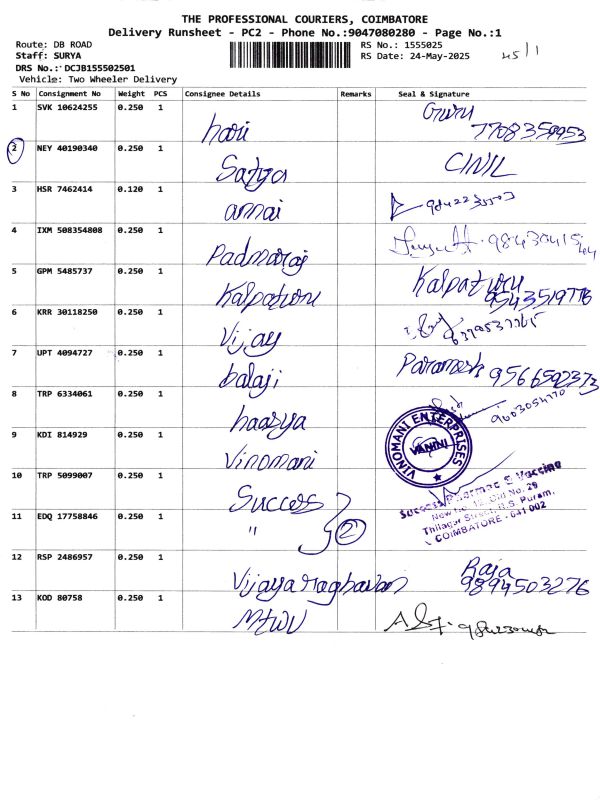 THE PROFESSIONAL COURIERS, COIMBATORE
Delivery Runsheet - PC2 - Phone No.:9047080280 - Page No.:1
Route: DB ROAD RS No.: 1555025
Staff: SURYA RS Date: 24-May-2025 45/1
DRS No.: DCJB155502501
Vehicle: Two Wheeler Delivery
S No Consignment No Weight PCS Consignee Details Remarks Seal & Signature
1 SVK 10624255 0.250 1 hari Guru 7708359953
2 NEY 40190340 0.250 1 Satya CIVIL
3 HSR 7462414 0.120 1 annai
4 IXM 508354808 0.250 1 Padmaraj
5 GPM 5485737 0.250 1 Kalpatwru Kalpatwru 9543519776
6 KRR 30118250 0.250 1 Vijay
7 UPT 4094727 0.250 1 balaji Paramesh 9566592373
8 TRP 6334061 0.250 1 haasya 9603054770
9 KDI 814929 0.250 1 Vinomani VINOMANI ENTERPRISES VANINI
10 TRP 5099007 0.250 1 Success Success Pharmac & Vaccine
New No. 12, Old No. 29
Thilagar Street, R.S. Puram,
COIMBATORE - 641 002
11 EDQ 17758846 0.250 1 " 2
12 RSP 2486957 0.250 1 Vijaya raghavan Raja 9894503276
13 KOD 80758 0.250 1 Mtwu